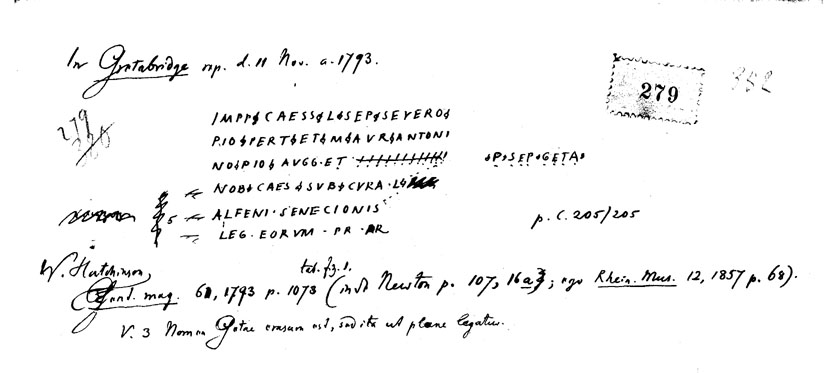 In Gretabridge rep. d. 11 Nov. a. 1793.
279
352
279
IMPP CAESS L SEP SEVERO
PIO PERT ET M AVR ANTONI
NO PIO AVGG·ET P·SEP·GETA
NOB CAES SVB CVRA·L
5 ALFENI·SENECIONIS
LEG·EORVM·PR·PR
p. C. 205/205
W. Hutchinson,
Gent. mag. 1793 p. 1073 tab. fig. 1. (inde Newton p. 107, 16a; ego Rhein. Mus. 12, 1857 p. 68).
V. 3 Nomen Getae erasum est, sed ita ut plane legatur.